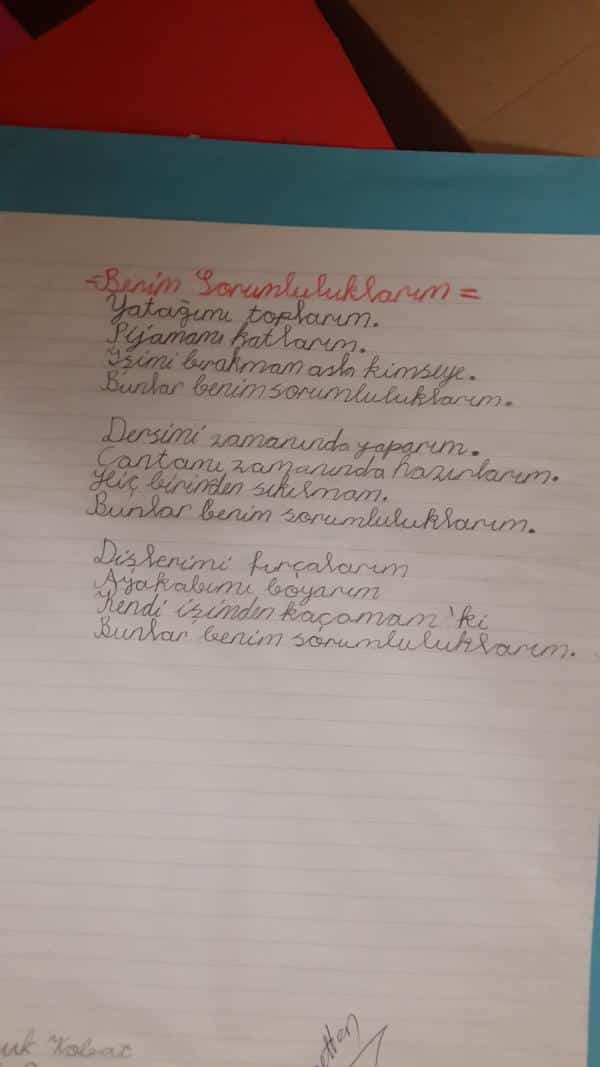 =Benim Sorumluluklarım=
Yatağımı toplarım.
Pijamamı katlarım.
İşimi bırakmam asla kimseye.
Bunlar benim sorumluluklarım.
Dersimi zamanında yaparım.
Çantamı zamanında hazırlarım.
Hiç birinden sıkılmam.
Bunlar benim sorumluluklarım.
Dişlerimi fırçalarım
Ayakabımı boyarım
Kendi işimden kaçamam'ki
Bunlar benim sorumluluklarım.